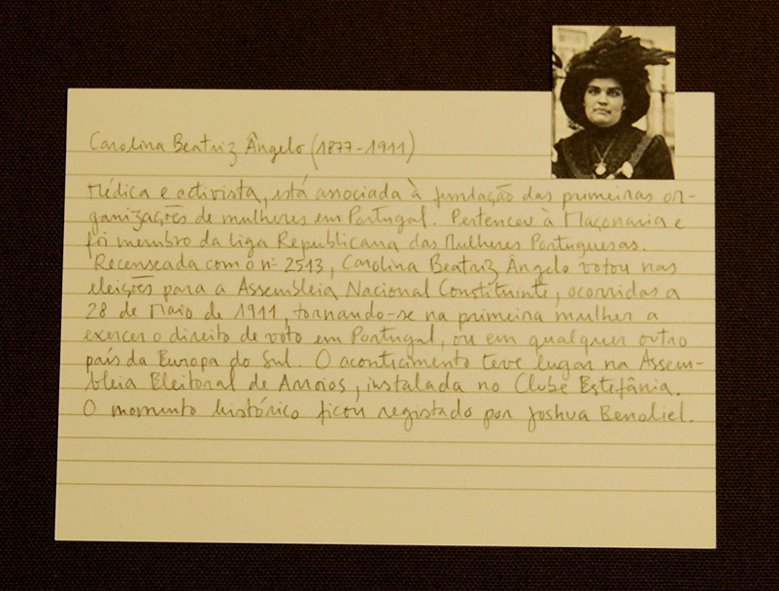 Carolina Beatriz Ângelo (1877-1911)
Médica e activista, está associada à fundação das primeiras or-
ganizações de mulheres em Portugal. Pertenceu à Maçonaria e
foi membro da Liga Republicana das Mulheres Portuguesas.
Recenseada com o nº 2513, Carolina Beatriz Ângelo votou nas
eleições para a Assembleia Nacional Constituinte, ocorridas a
28 de Maio de 1911, tornando-se na primeira mulher a
exercer o direito de voto em Portugal, ou em qualquer outro
país da Europa do Sul. O acontecimento teve lugar na Assem-
bleia Eleitoral de Arroios, instalada no Clube Estefânia.
O momento histórico ficou registado por Joshua Benoliel.